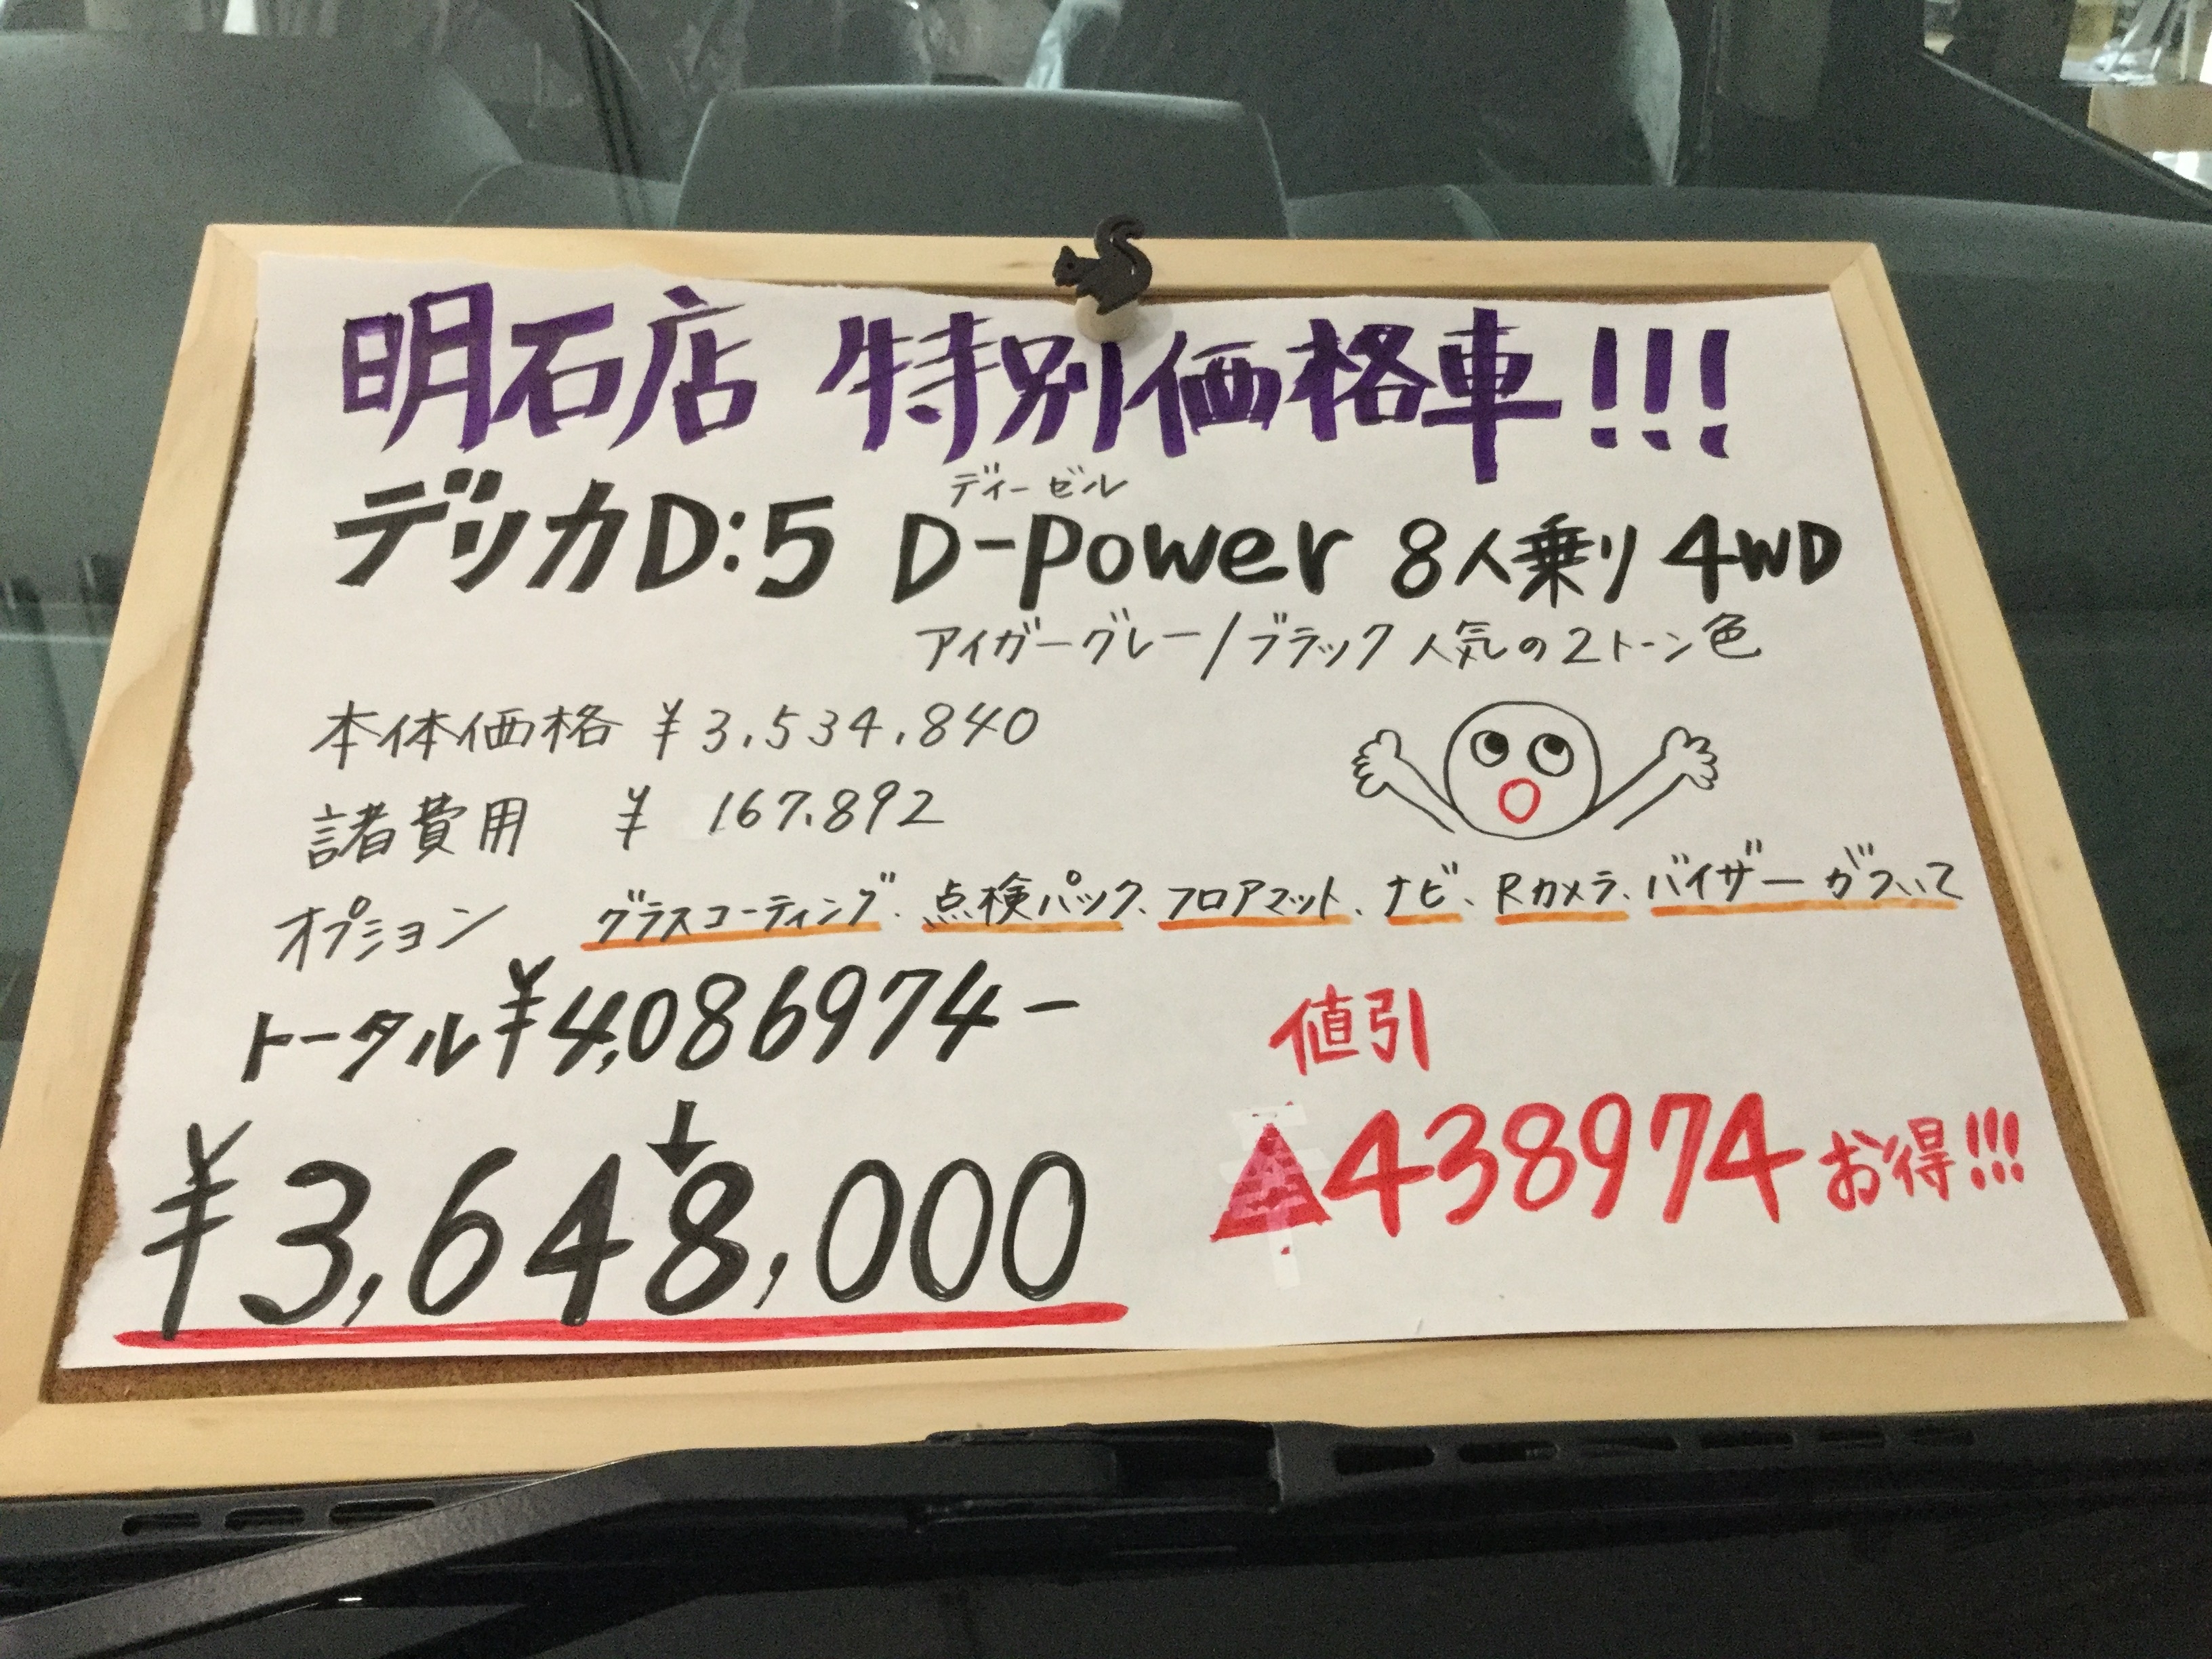 明石店 特別価格車!!!
ディーゼル
デリカD:5 D-Power 8人乗り 4WD
アイガーグレー/ブラック 人気の2トーン色
本体価格 ¥3,534,840
諸費用 ¥ 167,892
オプション グラスコーティング、点検パック、フロアマット、ナビ、Rカメラ、バイザーがついて
トータル¥4,086974-
値引
↓
¥3,648,000
▲438974お得!!!